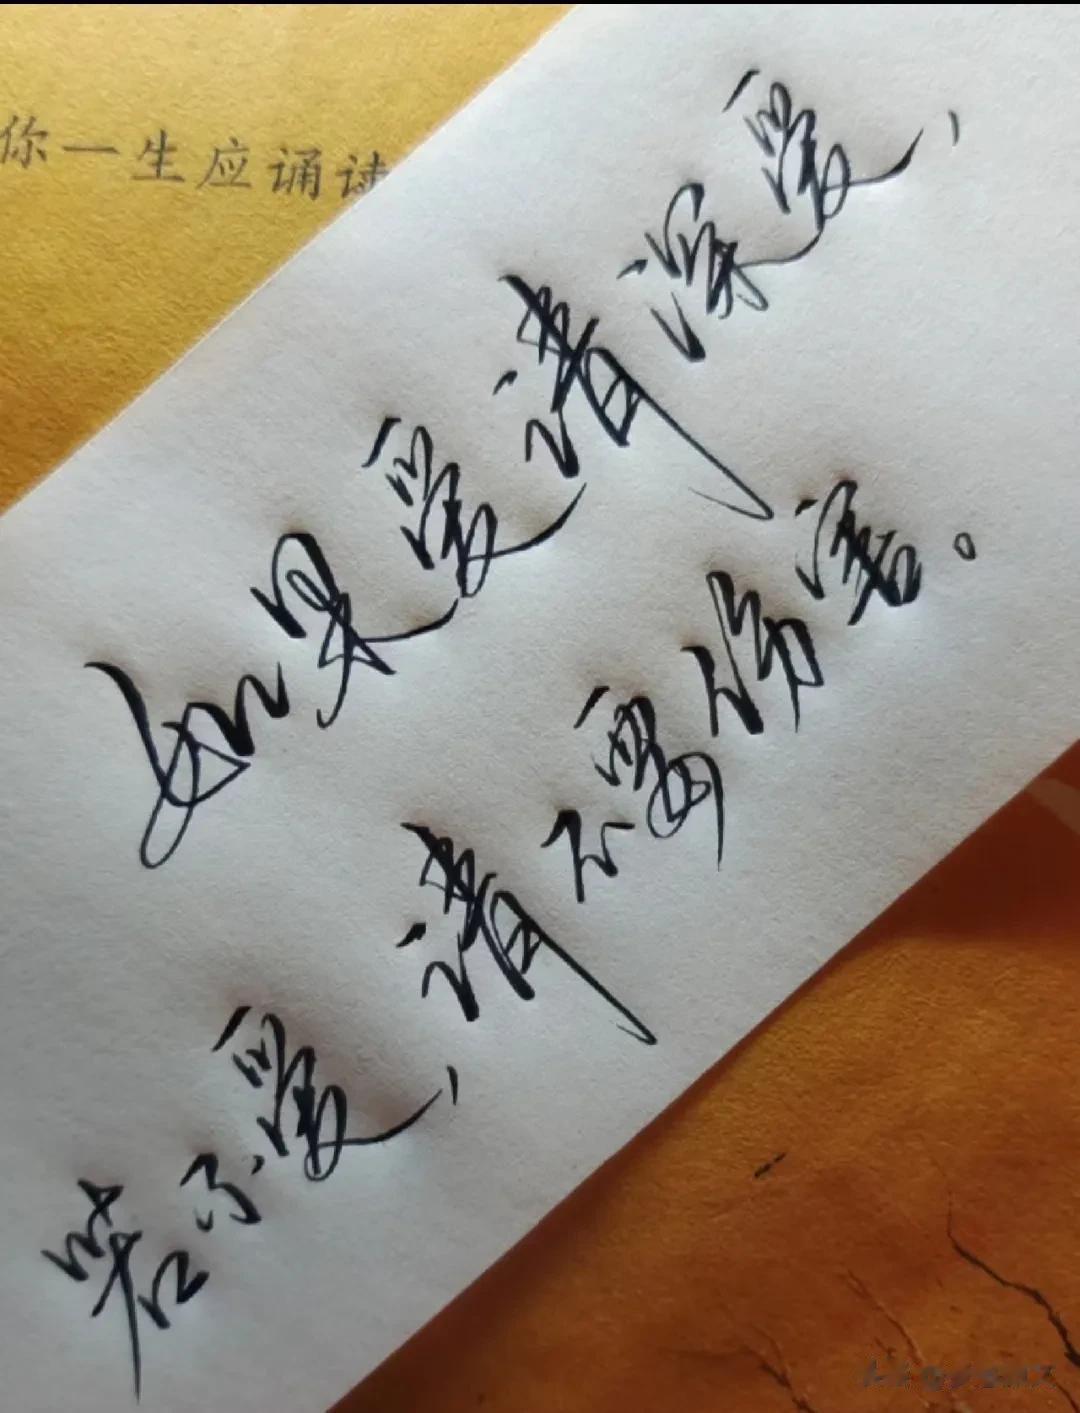 你一生应诵读
如果爱请深爱,
若不爱,请不要伤害。